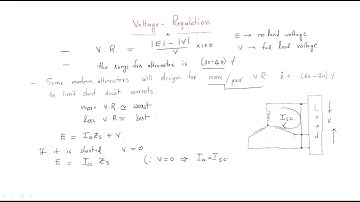 Voltage - Regulation
— V.R. = |E| - |V| / V ×100 E → no load voltage
V → full load voltage
— the range for alternator is (30-40) %
— Some modern alternators will design for more / poor V.R i.e (60-70) %
to limit short circuit currents
more V.R ≃ worst
less V.R ≃ best
E = Ia Zs + V
if it is shorted V=0
E = Isc Zs (∵ V=0 ⇒ Ia = Isc
Isc
Load
V